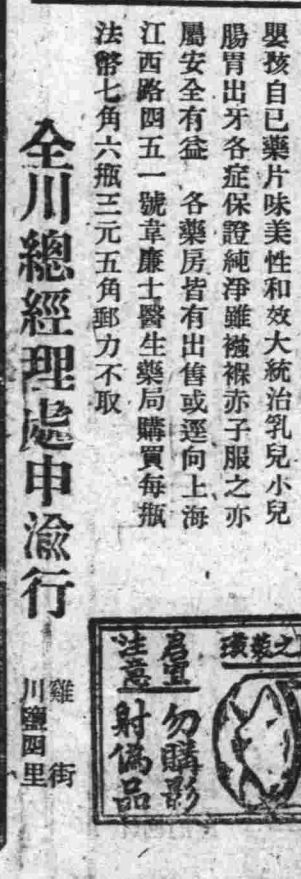 嬰孩自己藥片味美性和效大統治乳兒小兒
腸胃出牙各症保證純淨雖襁褓赤子服之亦
屬安全有益　各藥房皆有出售或逕向上海
江西路四五一號韋廉士醫生藥局購買每瓶
法幣七角六瓶三元五角郵力不取
全川總經理處申渝行
雞街
川鹽四里
之
君宜注意
勿購影射偽品